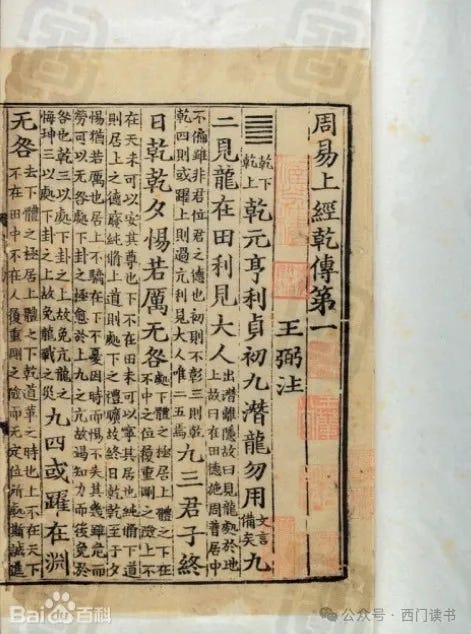 周易上經乾傳第一
王弼注
䷀乾下乾上乾元亨利貞初九潛龍勿用文言備矣九
二見龍在田利見大人出潛離隱故曰見龍處於地上故曰在田德施周普居中
不偏雖非君位君之德也初則不彰三則乾乾四則或躍上則過亢利見大人唯二五焉九三君子終
日乾乾夕惕若厲无咎處下體之極居上體之下在不中之位履重剛之險上不
在天未可以安其尊也下不在田未可以寧其居也純脩下道則居上之德廢純脩上道則處下之禮曠故終日乾乾至于夕
惕猶若厲也居上不驕在下不憂因時而惕不失其幾雖危而勞可以无咎處下卦之極愈於上九之亢故竭知力而後免於
咎也乾三以處下卦之上故免亢龍之悔坤三以處下卦之上故免龍戰之災九四或躍在淵
无咎去下體之極居上體之下乾道革之時也上不在天下不在田中不在人履重剛之險而无定位所處斯誠進
Bai百科
公众号·西门读书